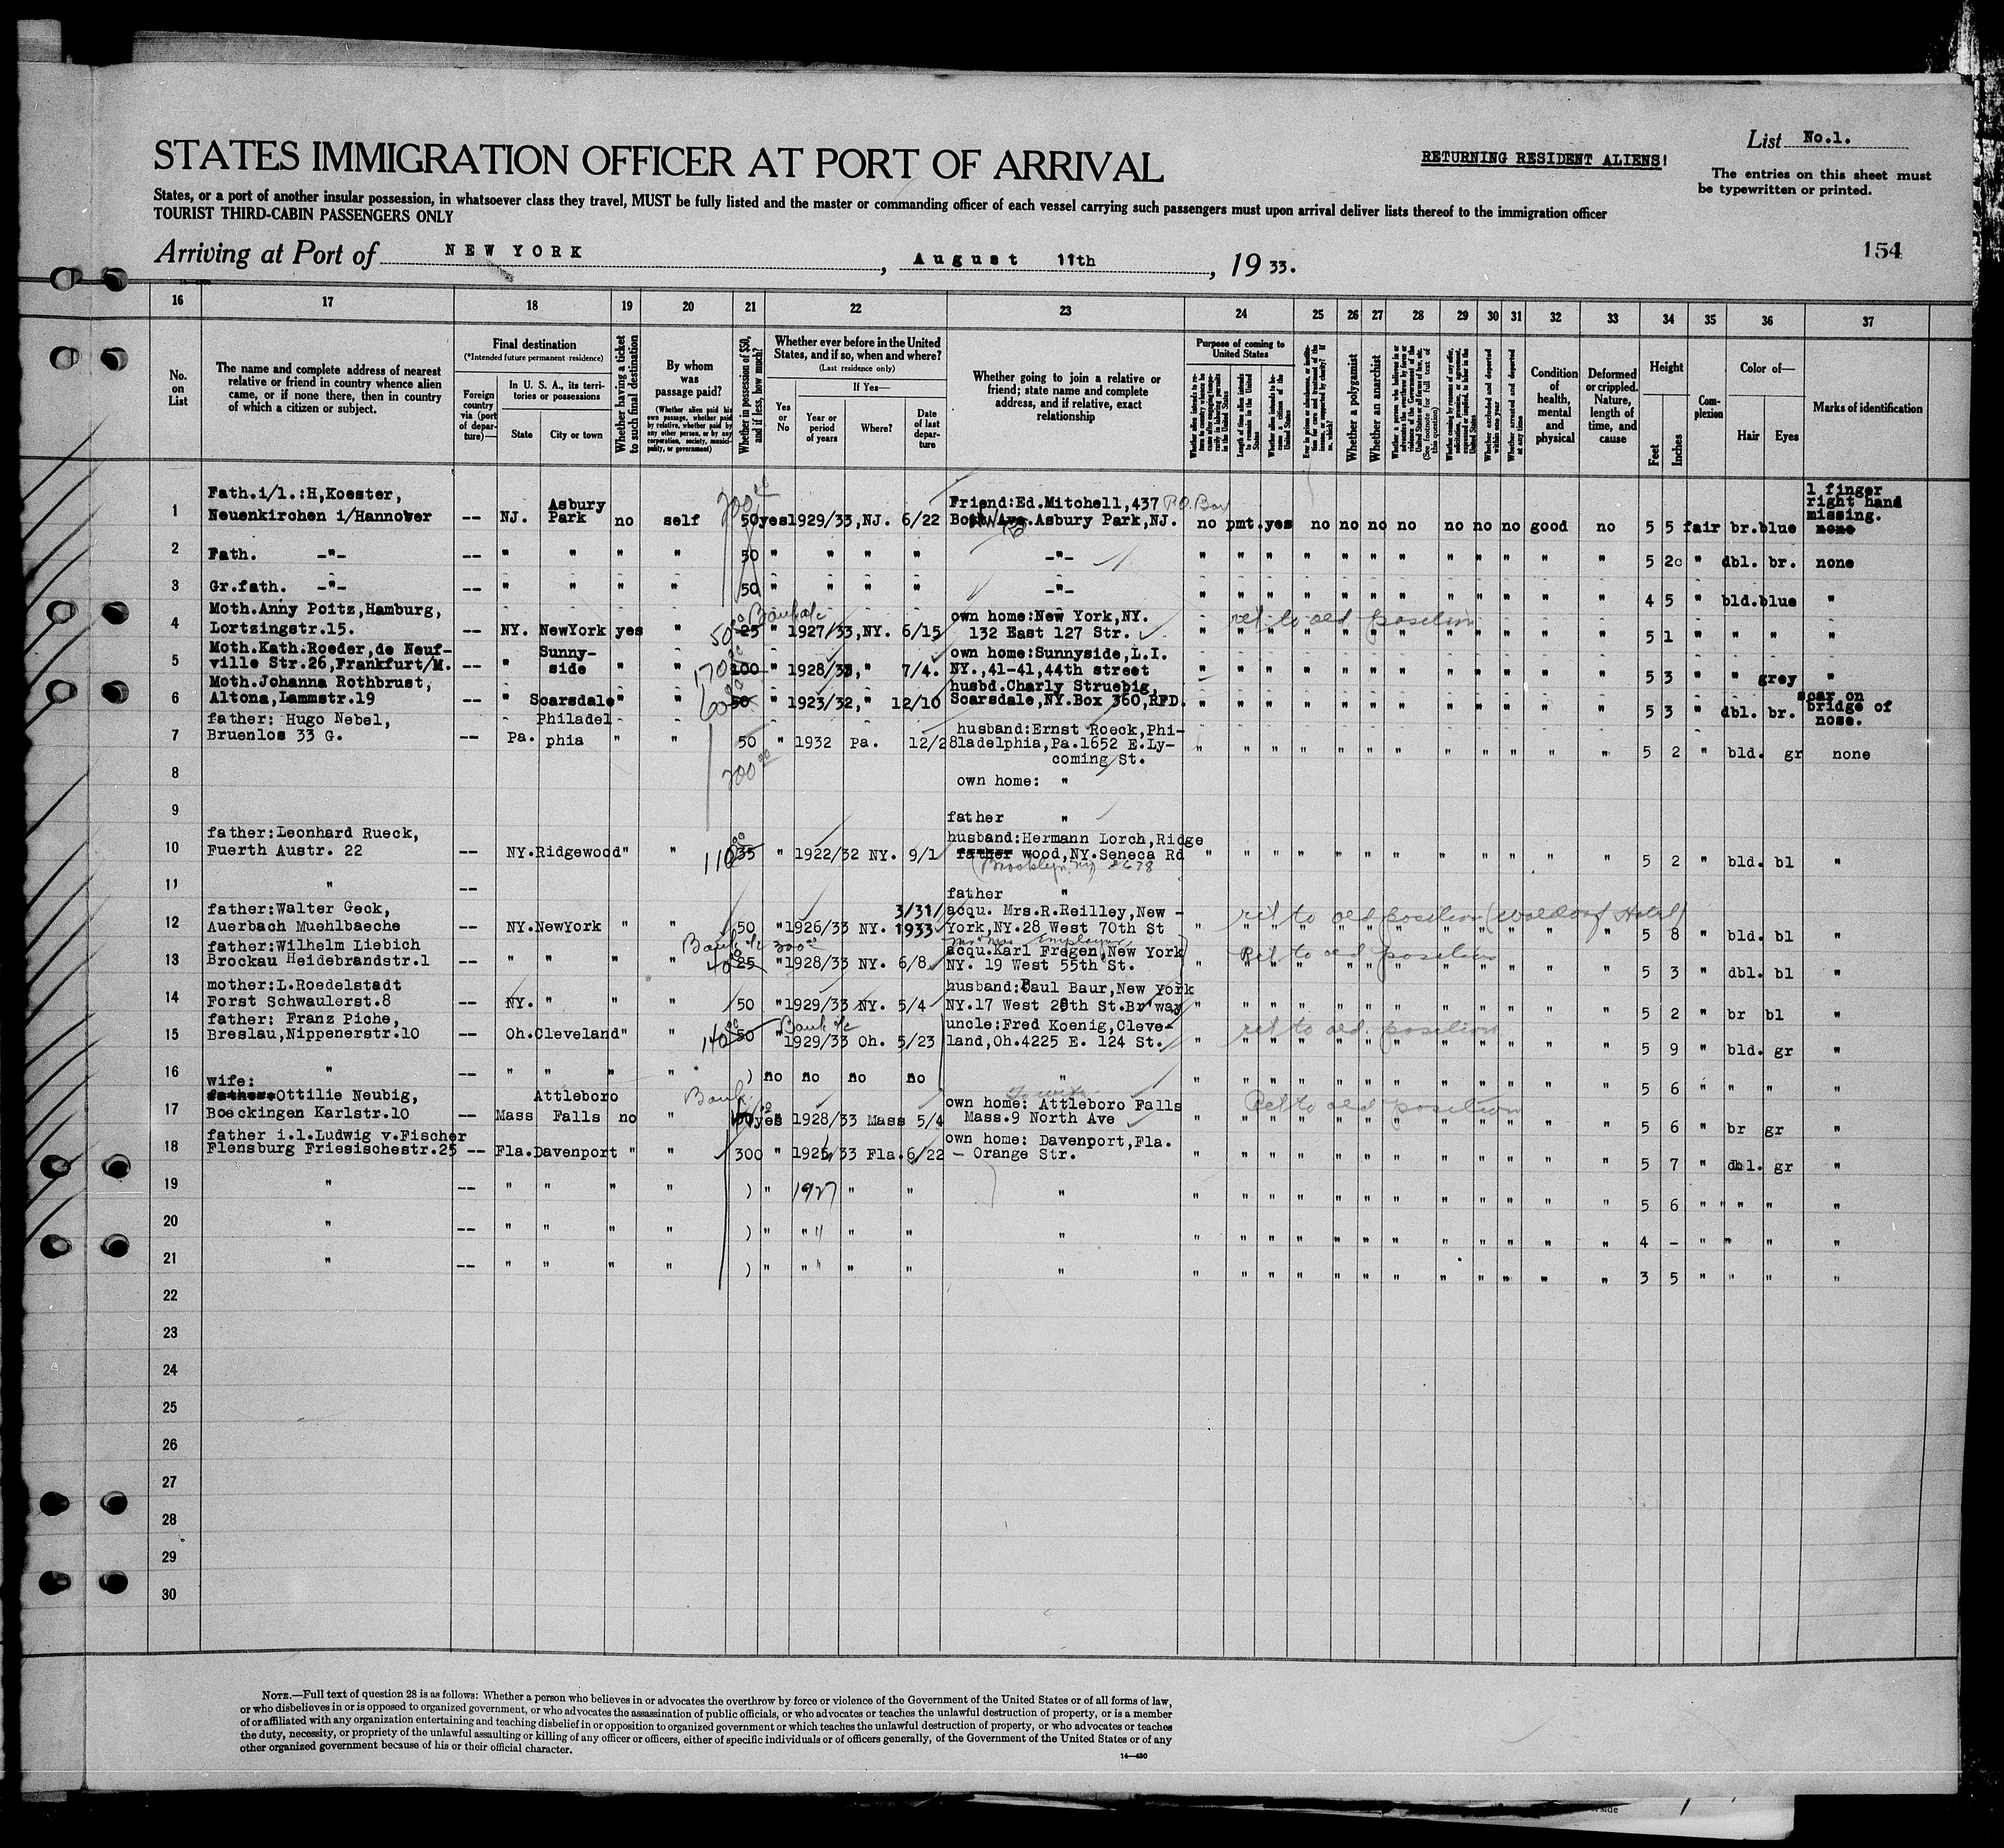 List No.1.
STATES IMMIGRATION OFFICER AT PORT OF ARRIVAL
RETURNING RESIDENT ALIENS!
The entries on this sheet must
be typewritten or printed.
States, or a port of another insular possession, in whatsoever class they travel, MUST be fully listed and the master or commanding officer of each vessel carrying such passengers must upon arrival deliver lists thereof to the immigration officer
TOURIST THIRD-CABIN PASSENGERS ONLY
Arriving at Port of NEW YORK, August 11th, 1933.
154
16 17 18 19 20 21 22 23 24 25 26 27 28 29 30 31 32 33 34 35 36 37
No. on List
The name and complete address of nearest
relative or friend in country whence alien
came, or if none there, then in country
of which a citizen or subject.
Final destination
(*Intended future permanent residence)
Foreign country via (port of departure)—
In U. S. A., its territories or possessions
State City or town
Whether having a ticket to such final destination
By whom was passage paid?
(Whether alien paid his own passage, whether paid by relative, whether paid by any other person, or by any corporation, society, municipality, or government)
Whether in possession of $50, and if less, how much?
Whether ever before in the United
States, and if so, when and where?
(Last residence only)
If Yes—
Yes or No
Year or period of years
Where?
Date of last departure
Whether going to join a relative or
friend; state name and complete
address, and if relative, exact
relationship
Purpose of coming to United States
Length of time alien intends to remain in the United States
Whether alien intends to become a citizen of the United States
Whether a polygamist
Whether an anarchist
(See footnote for full text of this question)
Whether excluded and deported within one year
Whether arrested and deported at any time
Condition of health, mental and physical
Deformed or crippled. Nature, length of time, and cause
Height
Feet Inches
Complexion
Color of—
Hair Eyes
Marks of identification
1 Fath.i/l.:H,Koester,
Neuenkirchen i/Hannover -- NJ. Asbury Park no self 50 yes 1929/33,NJ. 6/22 Friend:Ed.Mitchell,437 P.O. Box
Asbury Park,NJ. no pmt. yes no no no no no no no good no 5 5 fair br. blue 1 finger
right hand
missing.
none
200 00
2 Fath. -"- -- " " " " 50 " " " " -"- " " " " " " " " " " " " 5 2 " dbl. br. none
3 Gr.fath. -"- -- " " " " 50 " " " " -"- " " " " " " " " " " " " 4 5 " bld. blue "
4 Moth.Anny Poitz,Hamburg,
Lortzingstr.15. -- NY. NewYork yes " 25 " 1927/33,NY. 6/15 own home:New York,NY.
132 East 127 Str. " " " " " " " " " " " " 5 1 " " " "
50 00 Bank a/c
ret to old position
5 Moth.Kath.Roeder,de Neuf-
ville Str.26,Frankfurt/M. -- " Sunny-
side " " 100 " 1928/33, " 7/4. own home:Sunnyside,L.I.
NY.,41-41,44th street " " " " " " " " " " " " 5 3 " " grey "
170 00
6 Moth.Johanna Rothbrust,
Altona,Lammstr.19 -- " Scarsdale " " 50 " 1923/32," 12/10 husbd.Charly Struebig,
Scarsdale,NY.Box 360,RFD. " " " " " " " " " " " " 5 3 " dbl. br. scar on
bridge of
nose.
60 00
7 father: Hugo Nebel,
Bruenlos 33 G. -- Pa. Philadel
phia " " 50 " 1932 Pa. 12/28 husband:Ernst Roeck,Phi-
ladelphia,Pa.1652 E.Ly-
coming St. " " " " " " " " " " " " 5 2 " bld. gr none
200 00
8 own home: "
9 father "
10 father:Leonhard Rueck,
Fuerth Austr. 22 -- NY.Ridgewood " " 35 " 1922/32 NY. 9/1 husband:Hermann Lorch,Ridge
father wood,NY.Seneca Rd " " " " " " " " " " " " 5 2 " bld. bl "
110 00
(Brooklyn, NY) 1678
11 " -- father "
12 father:Walter Geck,
Auerbach Muehlbaeche -- NY.NewYork " " 50 " 1926/33 NY. 3/31/
1933 acqu. Mrs.R.Reilley,New -
York,NY.28 West 70th St " " " " " " " " " " " " 5 8 " bld. bl "
ret to old position (Waldorf Hotel)
13 father:Wilhelm Liebich
Brockau Heidebrandstr.1 -- " " " " 25 " 1928/33 NY. 6/8 acqu.Karl Fregen,New York
NY. 19 West 55th St. " " " " " " " " " " " " 5 3 " dbl. bl "
Bank a/c 300 00
40 00
employer
Ret to old position
14 mother:L.Roedelstadt
Forst Schwaulerst.8 -- NY. " " " 50 " 1929/33 NY. 5/4 husband:Paul Baur,New York
NY.17 West 28th St.Br'way " " " " " " " " " " " " 5 2 " br bl "
15 father: Franz Piche,
Breslau,Nippenerstr.10 -- Oh.Cleveland " " 50 " 1929/33 Oh. 5/23 uncle:Fred Koenig,Cleve-
land,Oh.4225 E. 124 St. " " " " " " " " " " " " 5 9 " bld. gr "
140 00 Bank a/c
ret to old position
16 " -- " " " " ) no no no no " " " " " " " " " " " " " 5 6 " " " "
17 wife:
father: Ottilie Neubig,
Boeckingen Karlstr.10 -- Mass Attleboro
Falls no " yes 1928/33 Mass 5/4 own home: Attleboro Falls
Mass.9 North Ave " " " " " " " " " " " " 5 6 " br gr "
Bank
to wife
Ret to old position
18 father i.l.Ludwig v.Fischer
Flensburg Friesischestr.25 -- Fla.Davenport " " 300 " 1925/33 Fla.6/22 own home: Davenport,Fla.
- Orange Str. " " " " " " " " " " " " 5 7 " dbl. gr "
19 " -- " " " " ) " 1927 " " " " " " " " " " " " " " " 5 6 " " " "
20 " -- " " " " ) " " " " " " " " " " " " " " " " " " 4 - " " " "
21 " -- " " " " ) " " " " " " " " " " " " " " " " " " 3 5 " " " "
22
23
24
25
26
27
28
29
30
NOTE.—Full text of question 28 is as follows: Whether a person who believes in or advocates the overthrow by force or violence of the Government of the United States or of all forms of law,
or who disbelieves in or is opposed to organized government, or who advocates the assassination of public officials, or who advocates or teaches the unlawful destruction of property, or is a member
of or affiliated with any organization entertaining and teaching disbelief in or opposition to organized government or which teaches the unlawful destruction of property, or who advocates or teaches
the duty, necessity, or propriety of the unlawful assaulting or killing of any officer or officers, either of specific individuals or of officers generally, of the Government of the United States or of any
other organized government because of his or their official character.
14—430